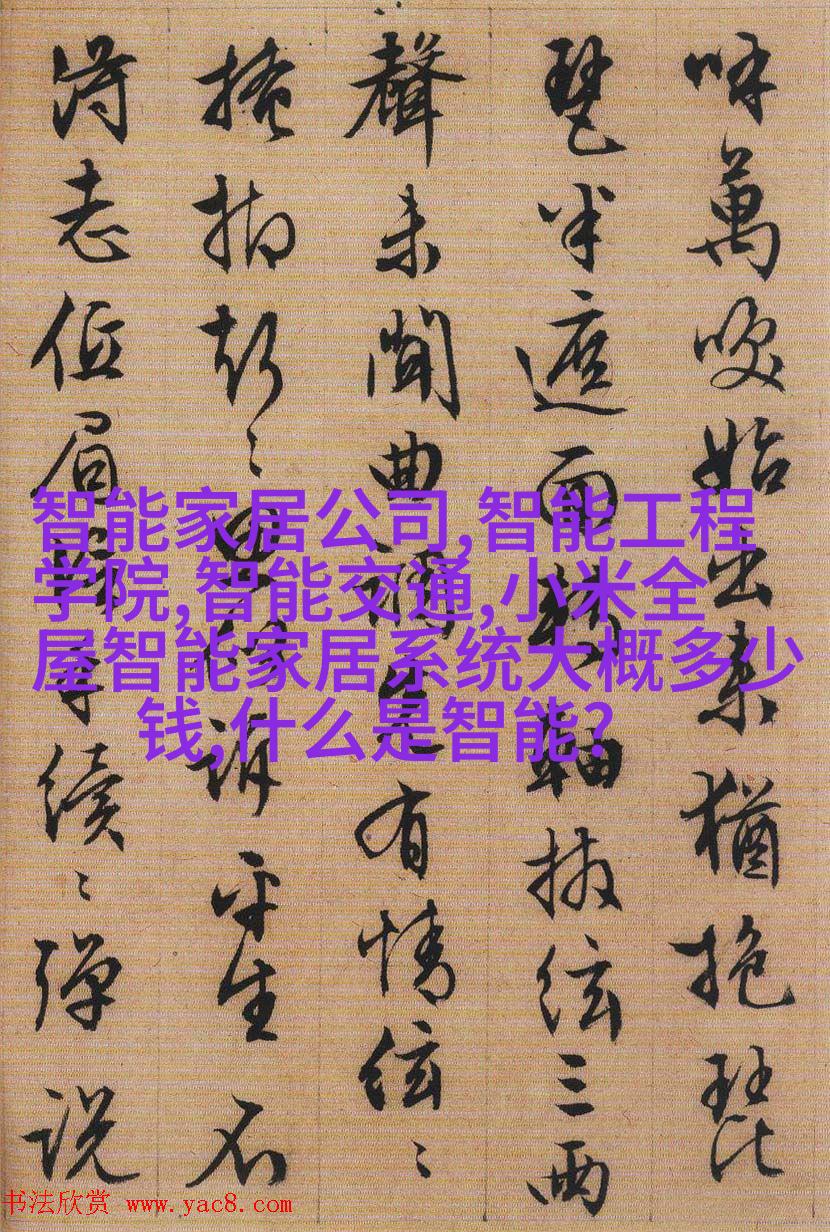 呼萬喚始出来猶抱琵
琶半遮面轉軸撥絃三兩
聲未聞曲調先有情絃〻
掩抑声〻思似訴平生不
得志低眉信手續〻彈説
智能家居公司,智能工程
学院,智能交通,小米全
屋智能家居系统大概多少
钱,什么是智能?
书法欣赏 www.yac8.com